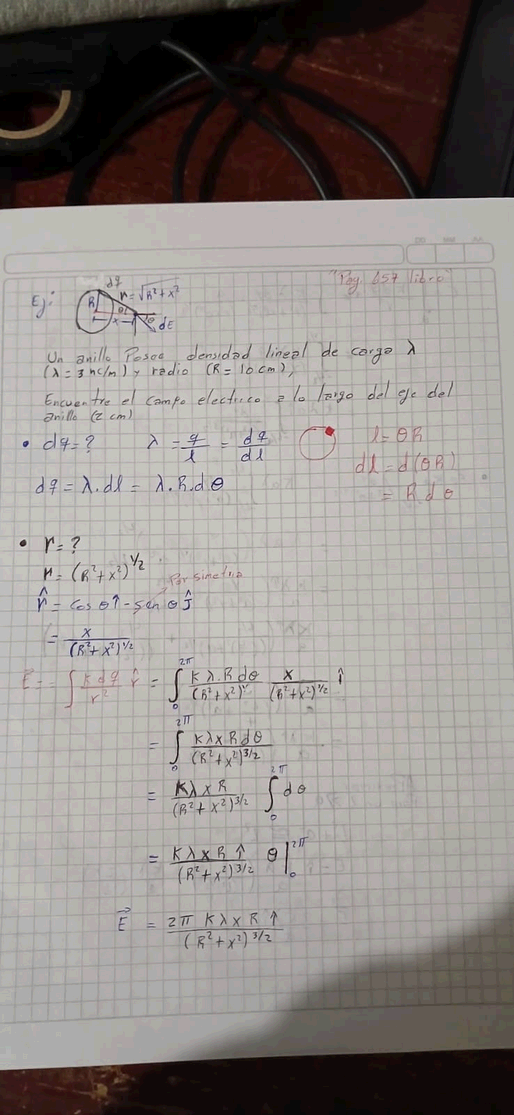 DD MM AA
"Pág 657 libro"
Ej:
dq
r=√R²+x²
R
θ
θ
x
dE
Un anillo Posee densidad lineal de carga λ
(λ=3 nc/m) y radio (R=10cm),
Encuentre el campo electrico a lo largo del eje del
anillo (2 cm)
• dq=? λ = q/l = dq/dl
l=θR
dl=d(θR)
= R dθ
dq = λ.dl = λ.R.dθ
• r=?
r=(R²+x²)^1/2
Por simetría
r̂ = cos θ î - sen θ ĵ
= x/(R²+x²)^1/2
E = ∫ k dq/r² r̂ = ∫₀^2π Kλ.R dθ/(R²+x²) x/(R²+x²)^1/2 î
= ∫₀^2π KλxRdθ/(R²+x²)^3/2
= KλxR/(R²+x²)^3/2 ∫₀^2π dθ
= KλxR î/(R²+x²)^3/2 θ|₀^2π
E⃗ = 2π KλxR î/(R²+x²)^3/2